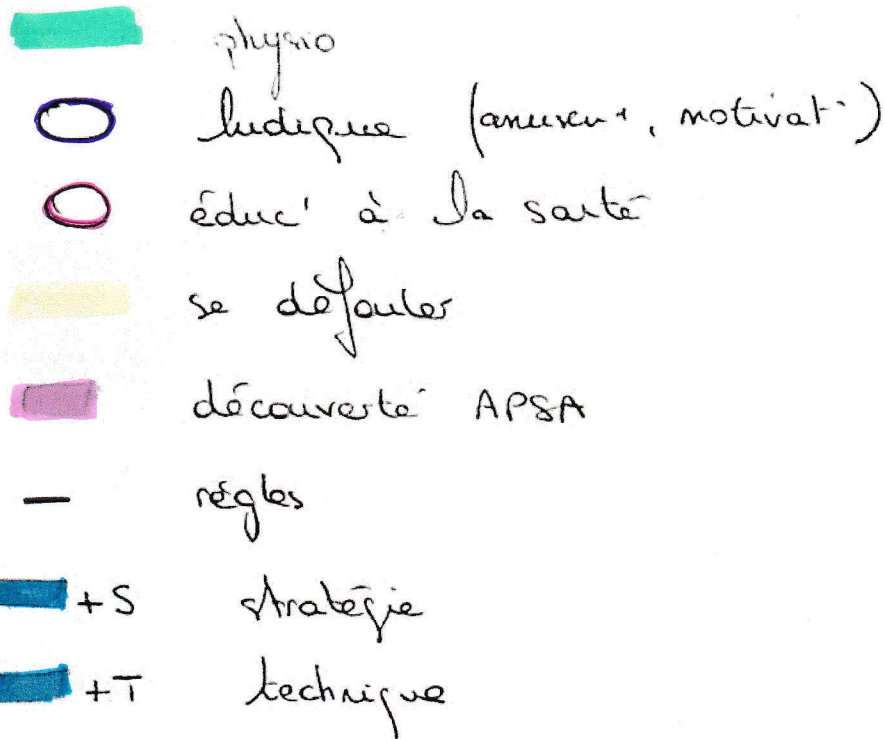 physio
ludique (amusem^t, motivat°)
éduc' à la santé
se défouler
découverte APSA
— règles
+S stratégie
+T technique